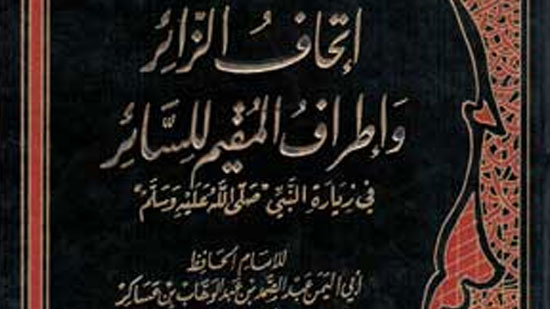 إتحاف الزائر
وَإطراف المُقيم للسَّائِر
في زيَارَة النَّبيِّ "صَلَّى اللَّهُ عَلَيْهِ وَسَلَّم"
للإمَام الحَافِظ
أبي اليُمن عَبد الصَّمد بن عَبد الوهَّاب بن عَسَاكر